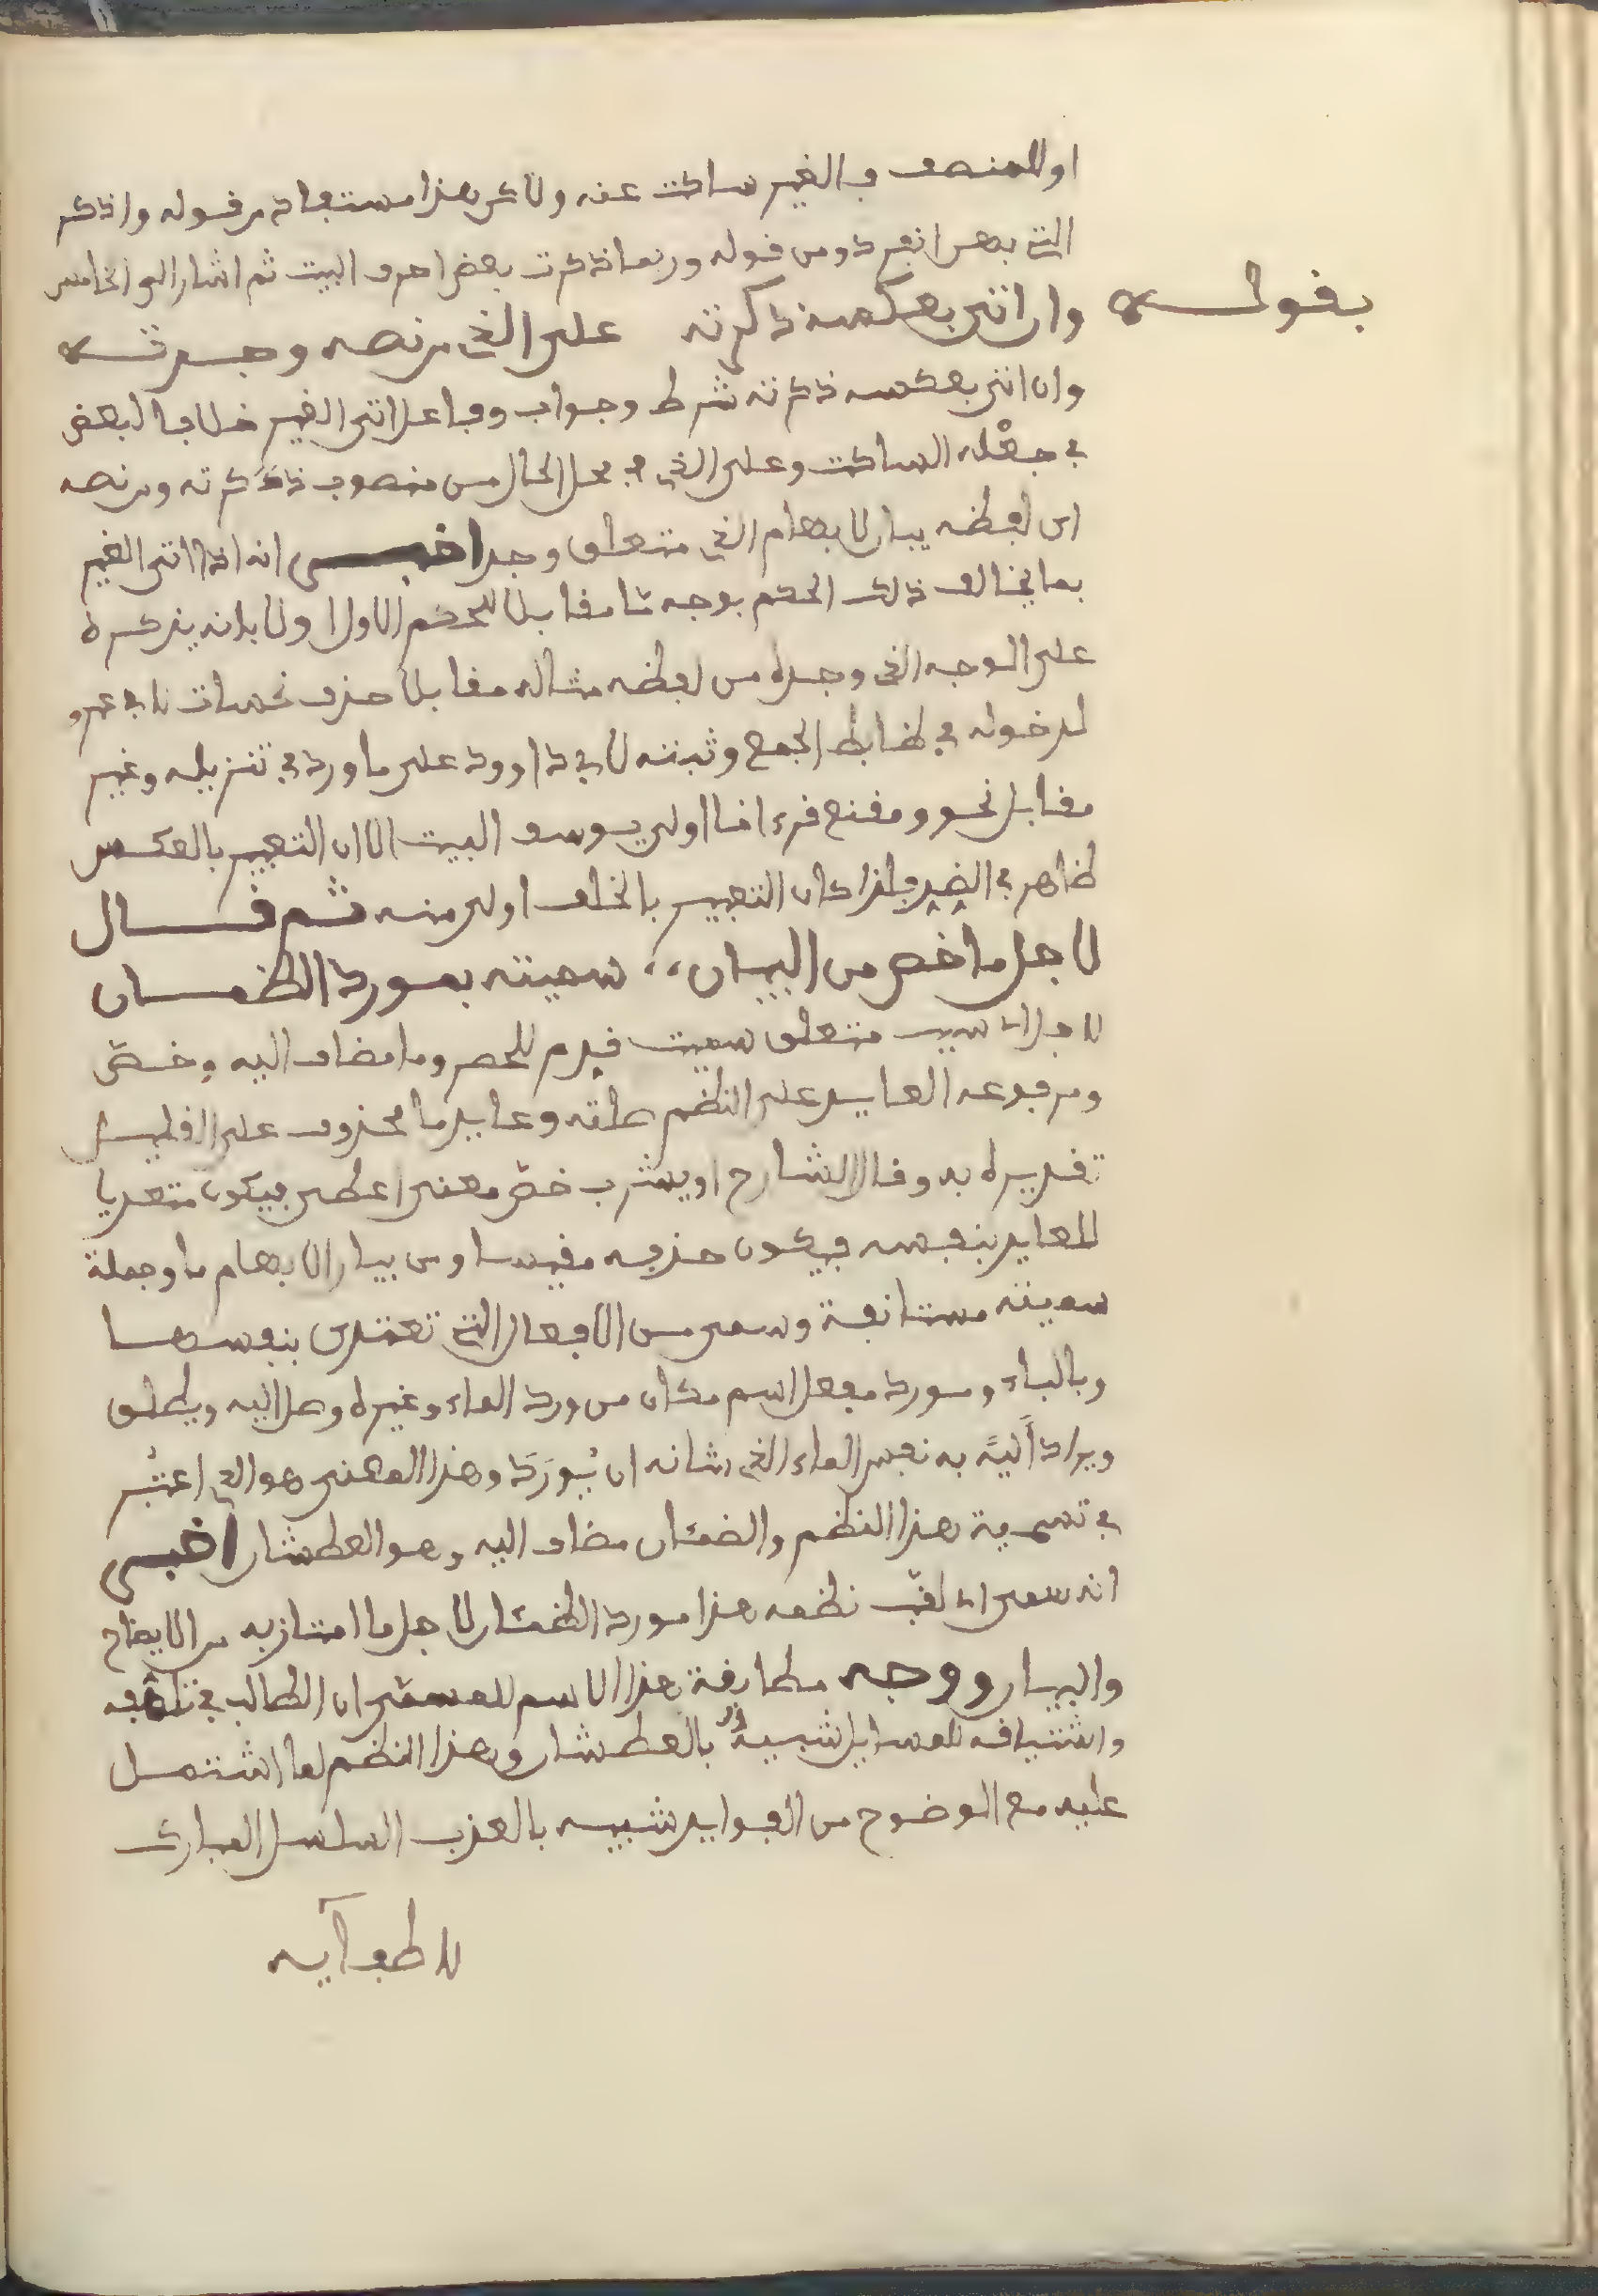 او للمنصف والغير ساكت عنه ولاكن هذا مستفاد من قوله واذكر
التي بهن انفرد ومن قوله وربما ذكرت بعض احرف البيت ثم اشار الى الخامس
بقوله
وان اتى بعكسه ذكرته على الذي من نصه وجدته
وان اتى بعكسه ذكرته شرط وجواب وفاعل اتى الغير خلافا لبعض
في جعله الساكت وعلى الذي في محل الحال من منصوب ذكرته ومن نصه
اى لفظه بيان لابهام الذي متعلق وجد اخبر انه اذا اتى الغير
بما يخالف ذلك الحكم بوجه ما مقابلا للحكم الاول او لا بانه يذكره
على الوجه الذي وجده من لفظه مثاله مقابلا حذف نحسات لابي عمرو
لدخوله في ضابط الجمع وثبته لابي داوود على ما ورد في تنزيله وغير
مقابل نحو ومقنع قرءانا اولى يوسف البيت الا ان التعبير بالعكس
ظاهر في الضد فلذا كان التعبير بالخلف اولى منه ثم قال
لاجل ما خص من البيان ،، سميته بمورد الظمان
لاجل اى سبب متعلق سميت قدم للحصر وما مضاف اليه وخص
ومرفوعه العايد على النظم صلته وعايد ما محذوف على القليل
تقديره به وقال الشارح او يشرب خص معنى اعطى فيكون متعديا
للعايد بنفسه فيكون حذفه مقيسا ومن بيان الابهام ما وجملة
سميته مستانفة وسمى من الافعال التي تتعدى بنفسها
وبالباء ومورد مفعل اسم مكان من ورد الماء وغيره وصل اليه ويطلق
ويراد اليه به نفس الماء الذي شانه ان يورد وهذا المعنى هو الذي اعتبر
في تسمية هذا النظم والضمئان مضاف اليه وهو العطشان اخبر
انه سمى اى لقب نظمه هذا مورد الظمئان لاجل ما امتاز به من الايضاح
والبيان ووجه مطابقة هذا الاسم للمسمى ان الطالب في تلهفه
واشتياقه للمسايل شبيه بالعطشان وهذا النظم لما اشتمل
عليه مع الوضوح من الفوايد شبيه بالعذب السلسل المبارك
لاطفا يه